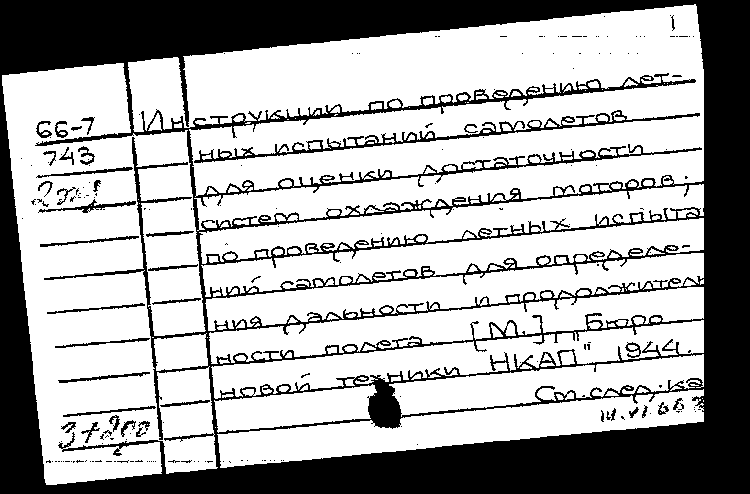 1
66-7 Инструкции по проведению лет-
743 ных испытаний самолетов
для оценки достаточности
систем охлаждения моторов;
по проведению летных испыта
ний самолетов для определе-
ния дальности и продолжитель
ности полета. [М.], „Бюро
новой техники НКАП", 1944.
См. след. ка
14.VI.66